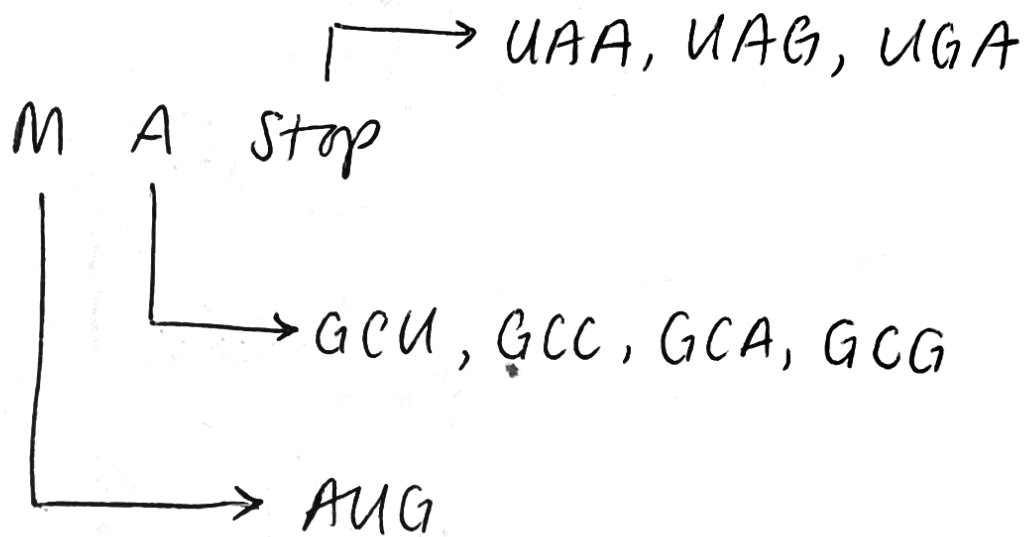 UAA, UAG, UGA
M A Stop
GCU, GCC, GCA, GCG
AUG